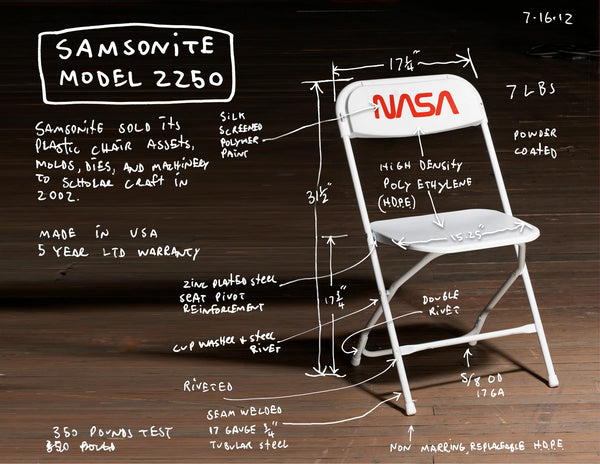 7·16·12
SAMSONITE
MODEL 2250
SAMSONITE SOLD ITS
PLASTIC CHAIR ASSETS,
MOLDS, DIES, AND MACHINERY
TO SCHOLAR CRAFT IN
2002.
MADE IN USA
5 YEAR LTD WARRANTY
SILK
SCREENED
POLYMER
PAINT
17 1/4"
NASA
7 LBS
POWDER
COATED
HIGH DENSITY
POLY ETHYLENE
(H.D.P.E)
31 1/2"
15.25"
ZINC PLATED STEEL
SEAT PIVOT
REINFORCEMENT
17 3/4"
DOUBLE
RIVET
CUP WASHER & STEEL
RIVET
RIVETED
5/8 OD
17 GA
SEAM WELDED
17 GAUGE 3/4"
TUBULAR STEEL
350 POUNDS TEST
NON MARRING, REPLACEABLE H.D.P.E.